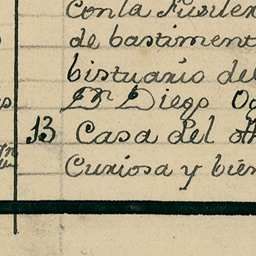 con la Fusiler
de bastiment
bistuario del
Dn Diego Og
13 Casa del
Curiosa y bien